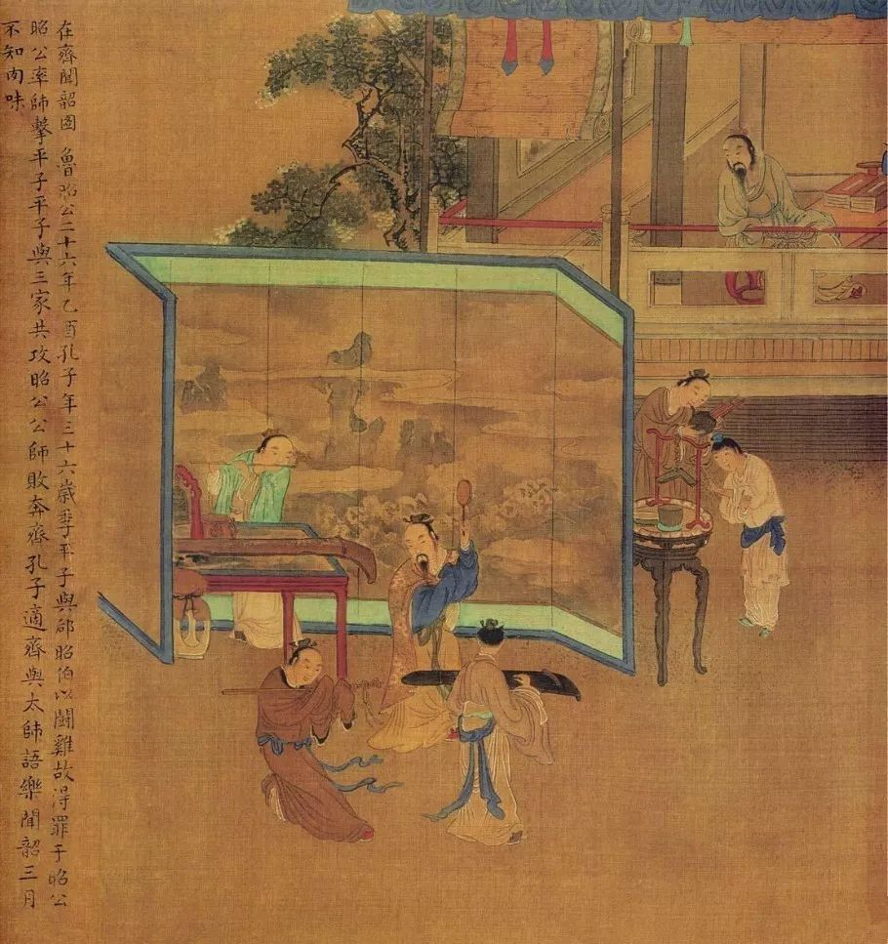 在齊聞韶圖 魯昭公二十六年乙酉孔子年三十六歲季平子與郈昭伯以鬪雞故得罪于昭公
昭公率師擊平子平子與三家共攻昭公公師敗奔齊孔子適齊與太師語樂聞韶三月
不知肉味